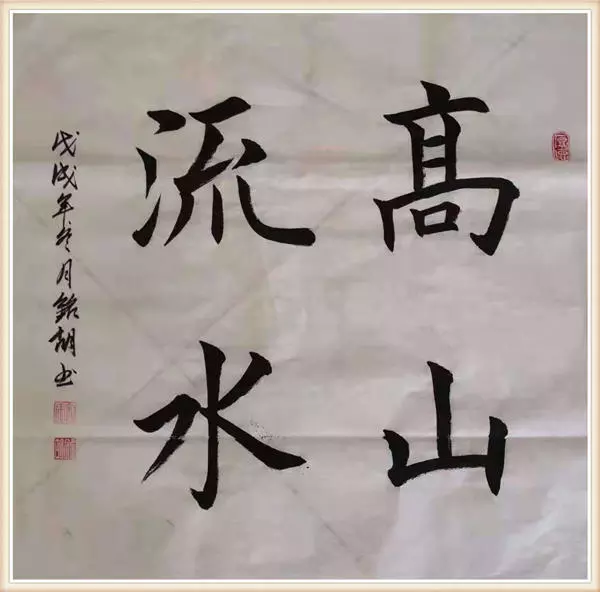 髙山
流水
戊戌年冬月銘胡书